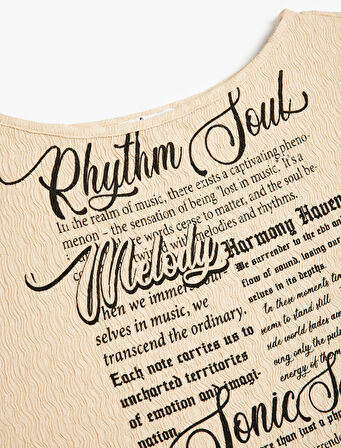 Rhythm Soul
In the realm of music, there exists a captivating pheno-
menon – the sensation of being 'lost in music.' It's a
words cease to matter, and the soul be-
with melodies and rhythms.
Melody
Harmony Haven
When we immer
selves in music, we
transcend the ordinary.
Each note carries us to
uncharted territories
of emotion and imagi-
nation
We surrender to the ebb and
flow of sound, losing our
selves in its depths.
In these moments, time
seems to stand still
side world fades away
ving only the pul
energy of the m
Sonic S
more than just a phr